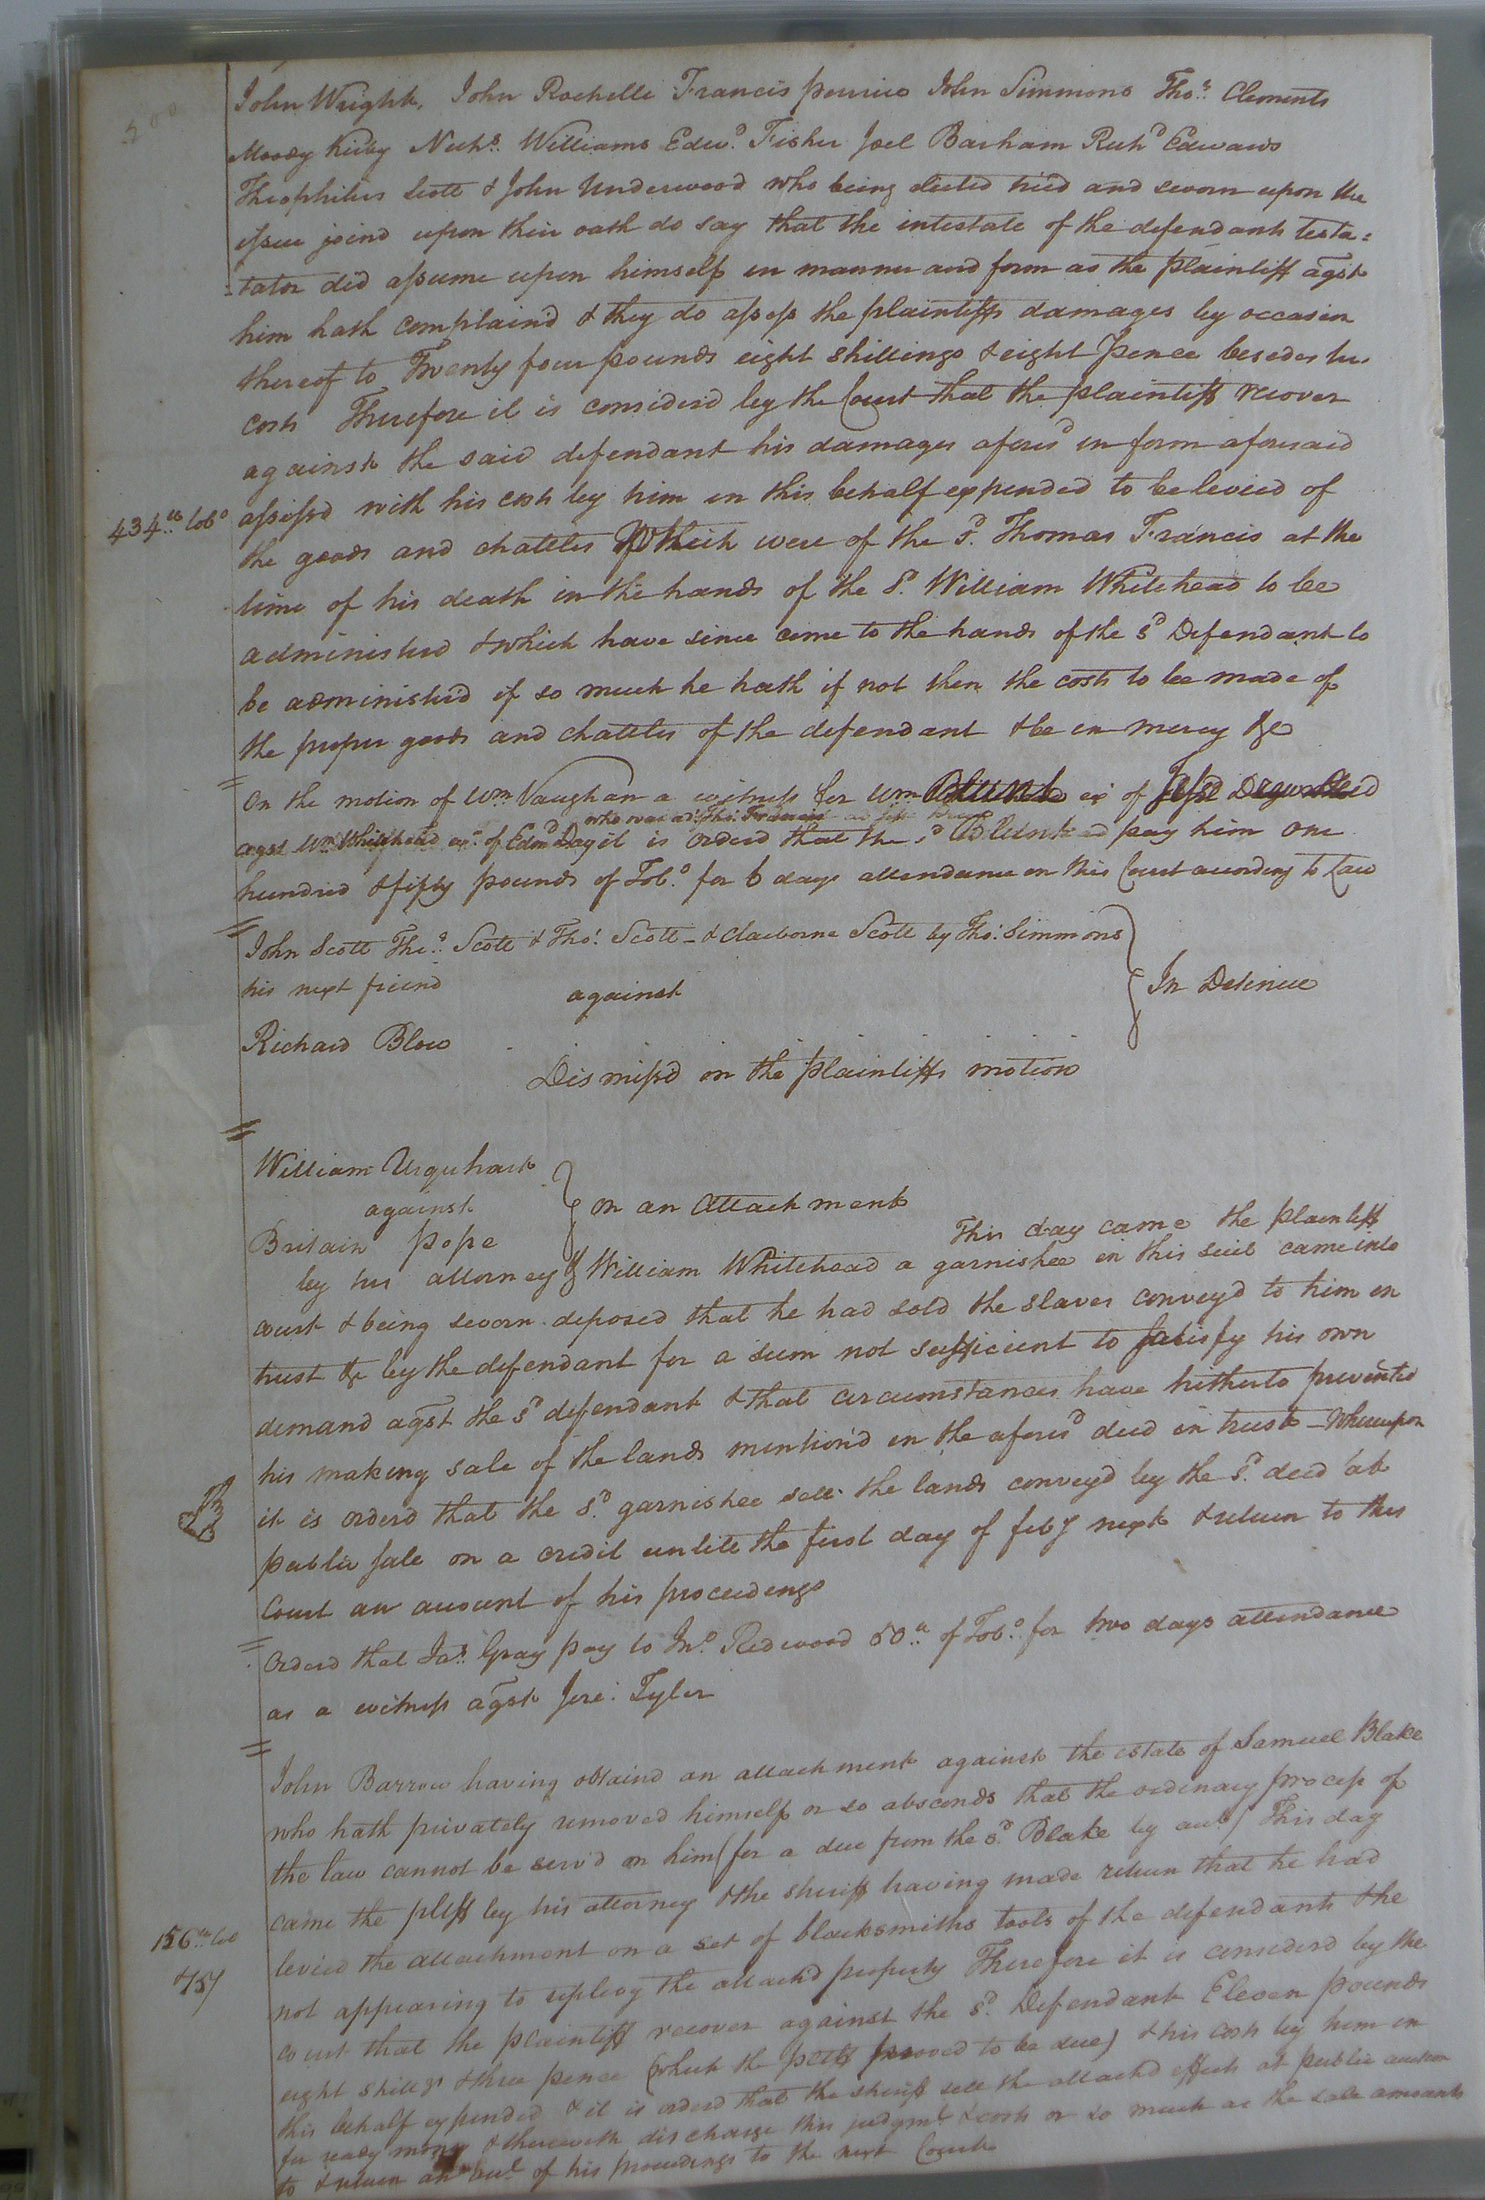 John Wright, John Rochelle Francis John Simmons Thos. Clements
Moody Kirby Nichs. Williams Edwd. Fisher Joel Barham Richd Edwards
Theophilus Scott & John Underwood who being elected tried and sworn upon the
issue joind upon their oath do say that the intestate of the defendants testa=
-tator did assume upon himself in manner and form as the plaintiff agst
him hath complain'd & they do assess the plaintiffs damages by occasion
thereof to Twenty four pounds eight shillings & eight pence besedes his
costs Therefore it is considerd by the Court that the plaintiff recover
against the said defendant his damages aforesd in form aforesaid
434lb tobo assess'd with his costs by him in this behalf expended to be levied of
the goods and chatteles Which were of the sd. Thomas Francis at the
time of his death in the hands of the sd. William Whitehead to be
administerd & which have since come to the hands of the sd Defendant to
be administerd if so much he hath if not then the costs to be made of
the proper goods and chatteles of the defendant & be in mercy &c
On the motion of Wm Vaughan a witness for Wm Blunt ex of
agst Wm Whitehead exr. of Edmd Day it is orderd that the sd Blunt pay him one
who was Thos. Francis
hundred & fifty pounds of Tobo. for 6 days attendance on this Court according to Law
John Scott Thes. Scott & Thos. Scott - & Claiborne Scott by Thos. Simmons
his next friend against In Detinue
Richard Blow
Dismiss'd on the plaintiffs motion
William Urquhart
against on an Attachment
Britain Pope This day came the plaintiff
by his attorney & William Whitehead a garnishee in this suit came into
court & being sworn deposed that he had sold the slaves convey'd to him in
trust &c by the defendant for a sum not sufficient to satisfy his own
demand agst the sd defendant & that circumstances have hitherto prevented
his making sale of the lands mention'd in the aforesd deed in trust - Whereupon
it is orderd that the sd. garnishee sell the lands convey'd by the sd. deed at
public sale on a credit untill the first day of feby next & return to this
Court an account of his proceedings
Orderd that Jas. Gray pay to Jno. Redwood 50lb of Tobo. for two days attendance
as a witness agst Jere: Tyler
John Barrow having obtaind an attachment against the estate of Samuel Blake
who hath privately removed himself or so absconds that the ordinary process of
the law cannot be serv'd on him (for a due from the sd. Blake by acct) This day
came the pltff by his attorney & the sheriff having made return that he had
156lb tob levied the attachment on a set of blacksmiths tools of the defendants & he
& 15/ not appearing to replevy the attach'd property Therefore it is considerd by the
court that the plaintiff recover against the sd. Defendant Eleven pounds
eight shillgs & three pence (which the pltff proved to be due) & his costs by him in
this behalf expended & it is orderd that the sheriff sell the attachd effects at public auction
for ready money & therewith discharge this judgmt. & costs or so much as the sale amounts
to & return an acct. of his proceedings to the next Court